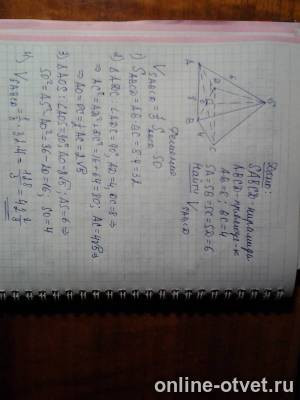 Дано:
SABCD - пирамида
ABCD - прямоуг-к
AB=8; BC=4
SA=SB=SC=SD=6
Найти V SABCD
S
6
A
B
C
D
O
8
4
Решение
V SABCD = 1/3 S ABCD · SO
1) S ABCD = AB·BC = 8·4 = 32
2) ΔADC: ∠ADC=90°, AD=4, DC=8 ⇒
⇒ AC² = AD²+DC² = 16+64 = 80; AC=4√5 ⇒
⇒ AO=OC=½AC=2√5
3) ΔAOS: ∠AOS=90°, AO=2√5, AS=6 ⇒
SO²=AS²-AO²=36-20=16, SO=4
4) V SABCD = 1/3 · 32·4 = 128/3 = 42 2/3
online-otvet.ru